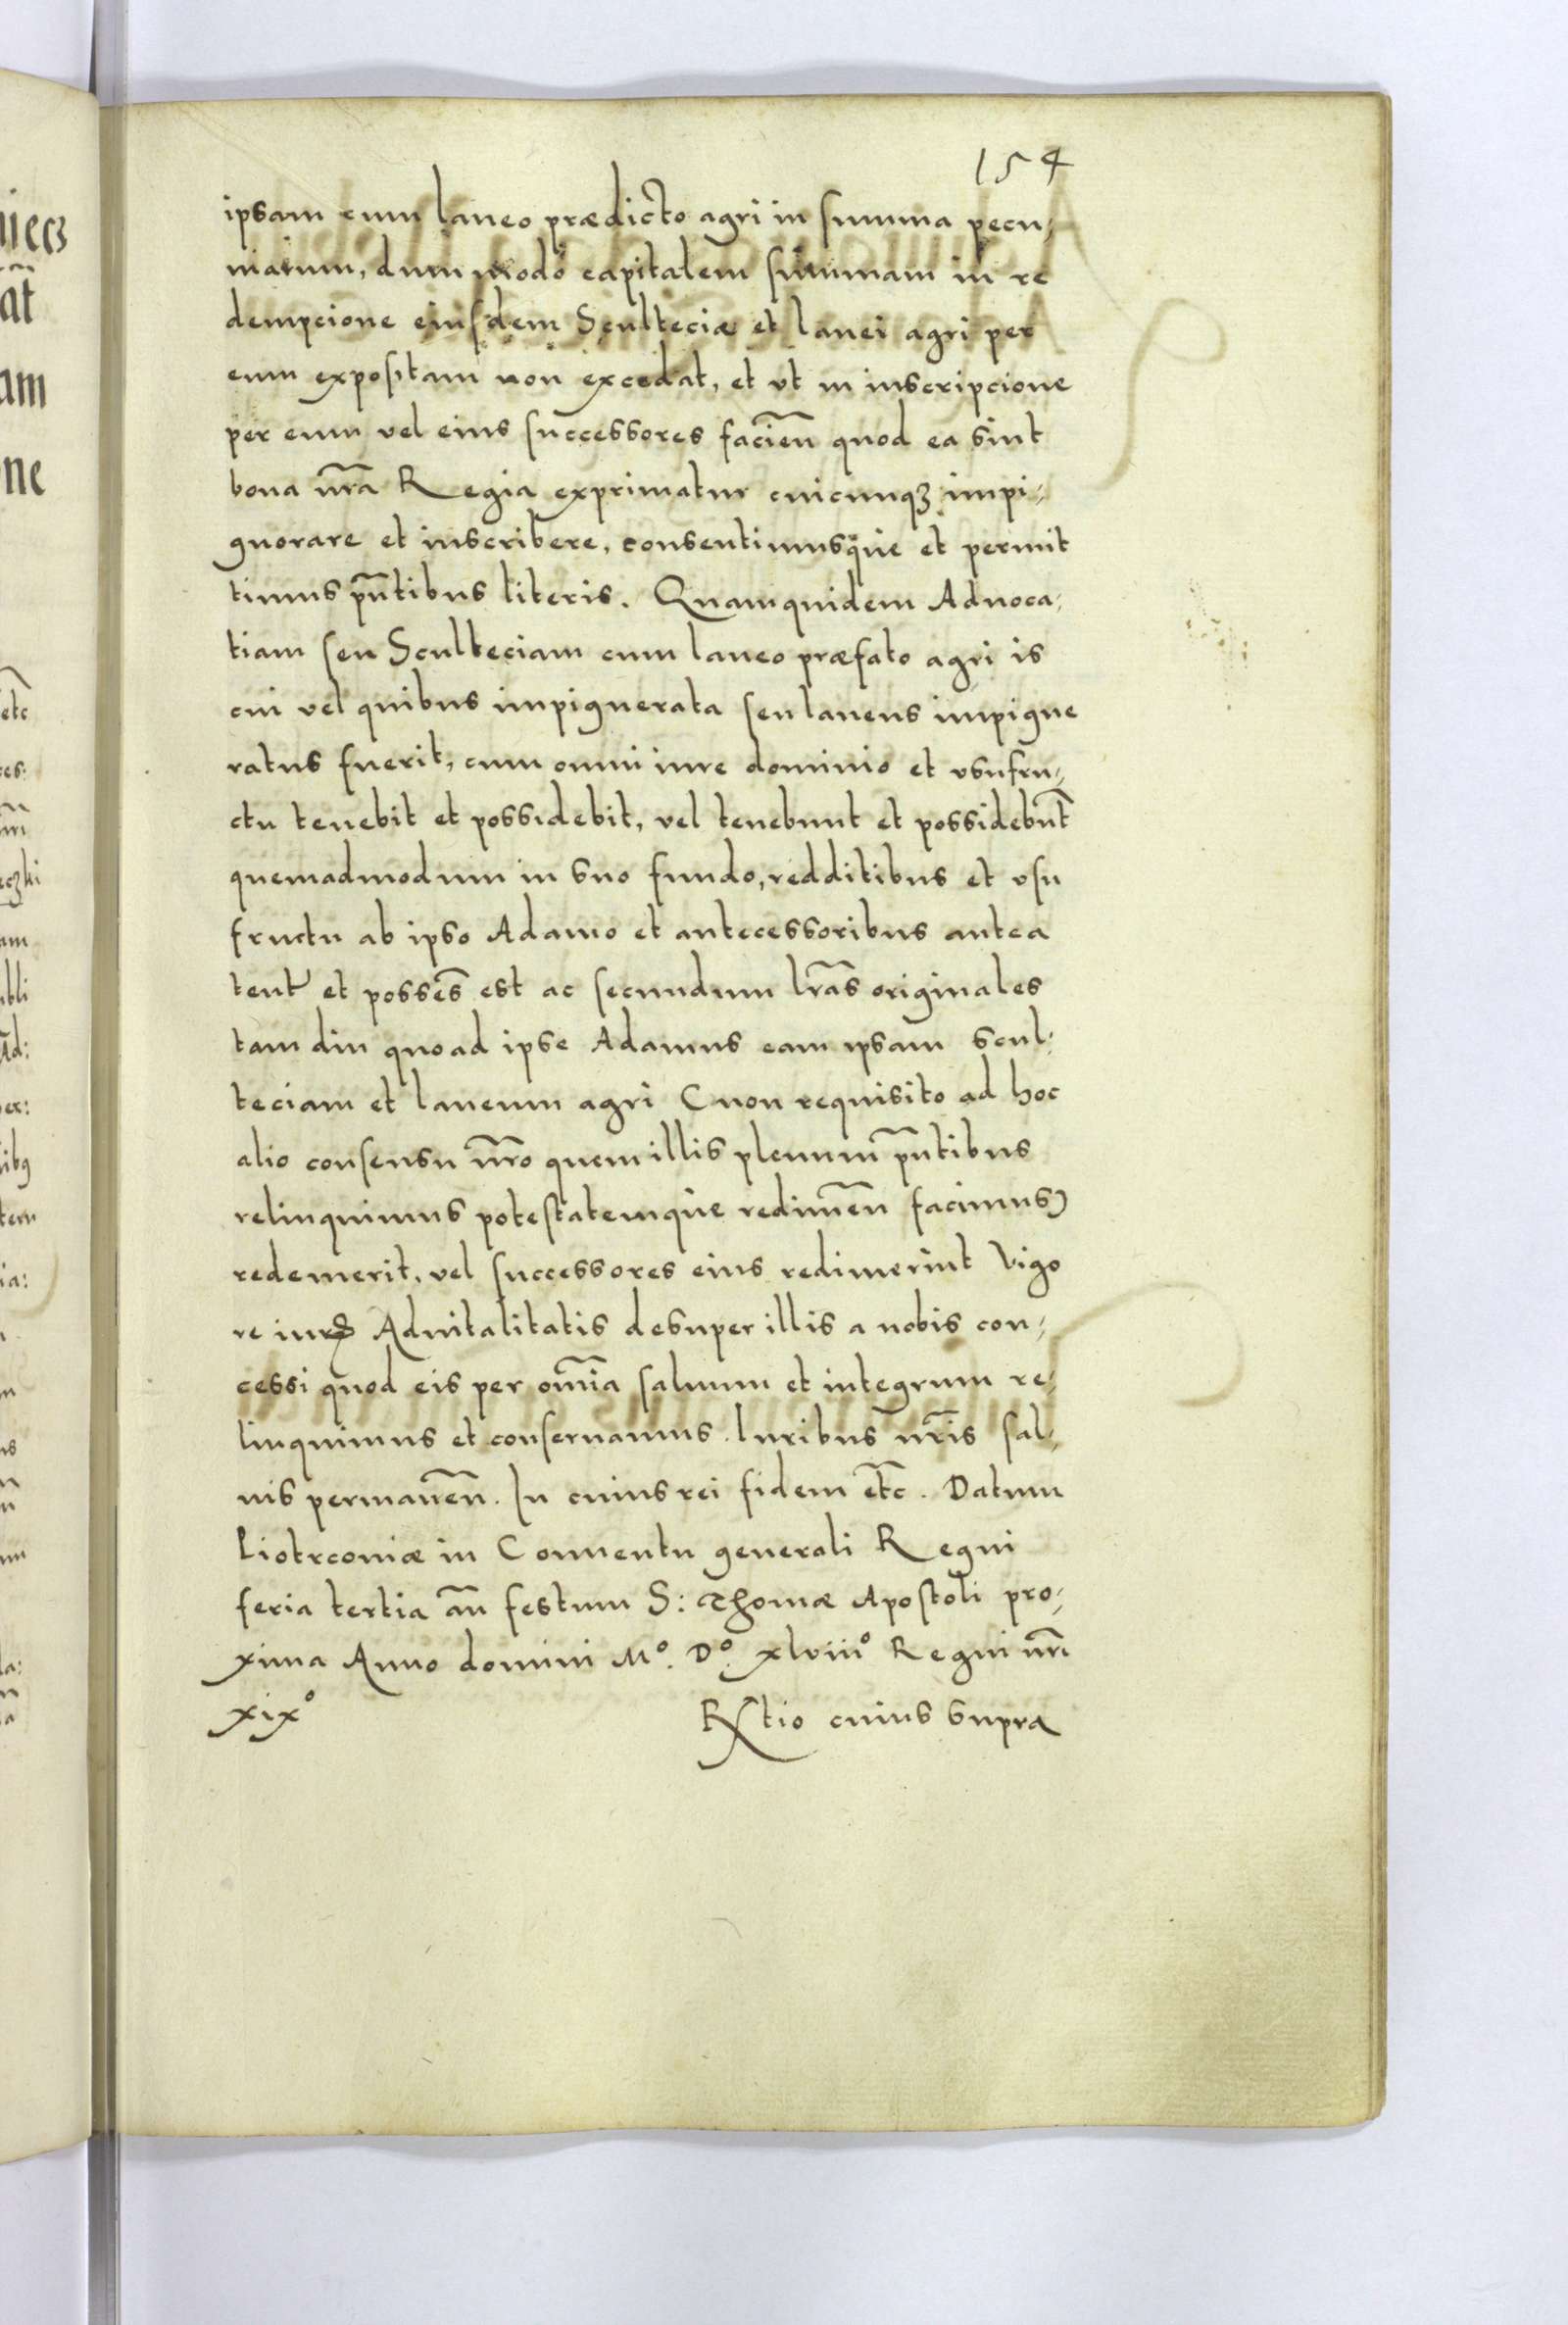 154
ipsam cum laneo prædicto agri in summa pecu-
niarum, dummodo capitalem summam in re
dempcione eiusdem Sculteciæ et lanei agri per
eum expositam non excedat, et vt in inscripcione
per eum vel eius successores facien̄ quod ea sint
bona nr̄a Regia exprimatur cuicunqꝫ impi-
gnorare et inscribere, consentimusque et permit
timus pn̄tibus literis. Quamquidem Aduoca-
tiam seu Sculteciam cum laneo præfato agri is
cui vel quibus impignerata seu laneus impigne
ratus fuerit, cum omni iure dominio et vsufru-
ctu tenebit et possidebit, vel tenebunt et possidebnt̄
quemadmodum in suo fundo, redditibus et vsu
fructu ab ipso Adamo et antecessoribus antea
tent̄ et possēs est ac secundum lr̄as originales
tam diu quoad ipse Adamus eam ipsam scul-
teciam et laneum agri (non requisito ad hoc
alio consensu nr̄o quem illis plenum pn̄tibus
relinquimus potestatemque redimen̄ facimus)
redemerit, vel successores eius redimerint Vigo
re iurꝭ Aduitalitatis desuper illis a nobis con-
cessi quod eis per om̄ia saluum et integrum re-
linquimus et conseruamus. Iuribus nr̄is sal-
uis permanen̄. In cuius rei fidem etc̄. Datum
Piotrconiæ in Conuentu generali Regni
feria tertia an̄ festum S: Thomæ Apostoli pro-
xima Anno domini Mº. Dº. xlviiiº Regni nr̄i
xixº
R̄tio cuius supra